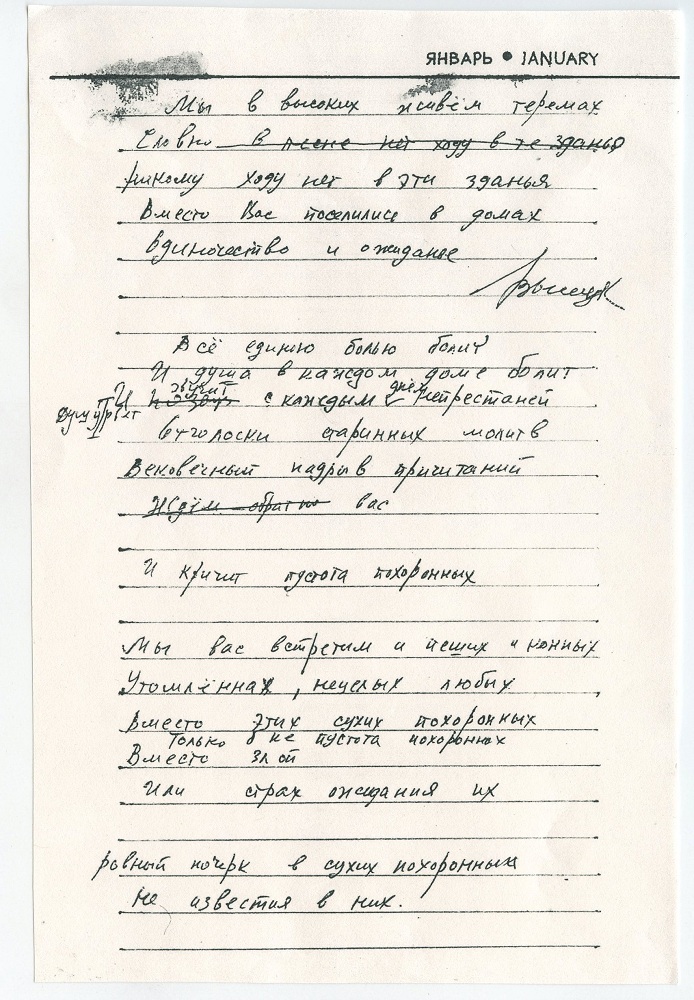 ЯНВАРЬ ● JANUARY
Мы в высоких живём теремах
Словно в песне нет ходу в те зданья
никому ходу нет в эти зданья
Вместо Вас поселились в домах
Одиночество и ожиданье
Всё единою болью болит
И душа в каждом доме болит
звучит днём
И с каждым непрестаней
Отголоски старинных молитв
Вековечный надрыв причитаний
Ждём обратно вас
И кричит пустота похоронных
Мы вас встретим и пеших и конных
Утомлённах, нецелых любых
Вместо этих сухих похоронных
Только б не пустота похоронных
Вместо злой
Или страх ожидания их
ровный почерк в сухих похоронных
Не известия в них.